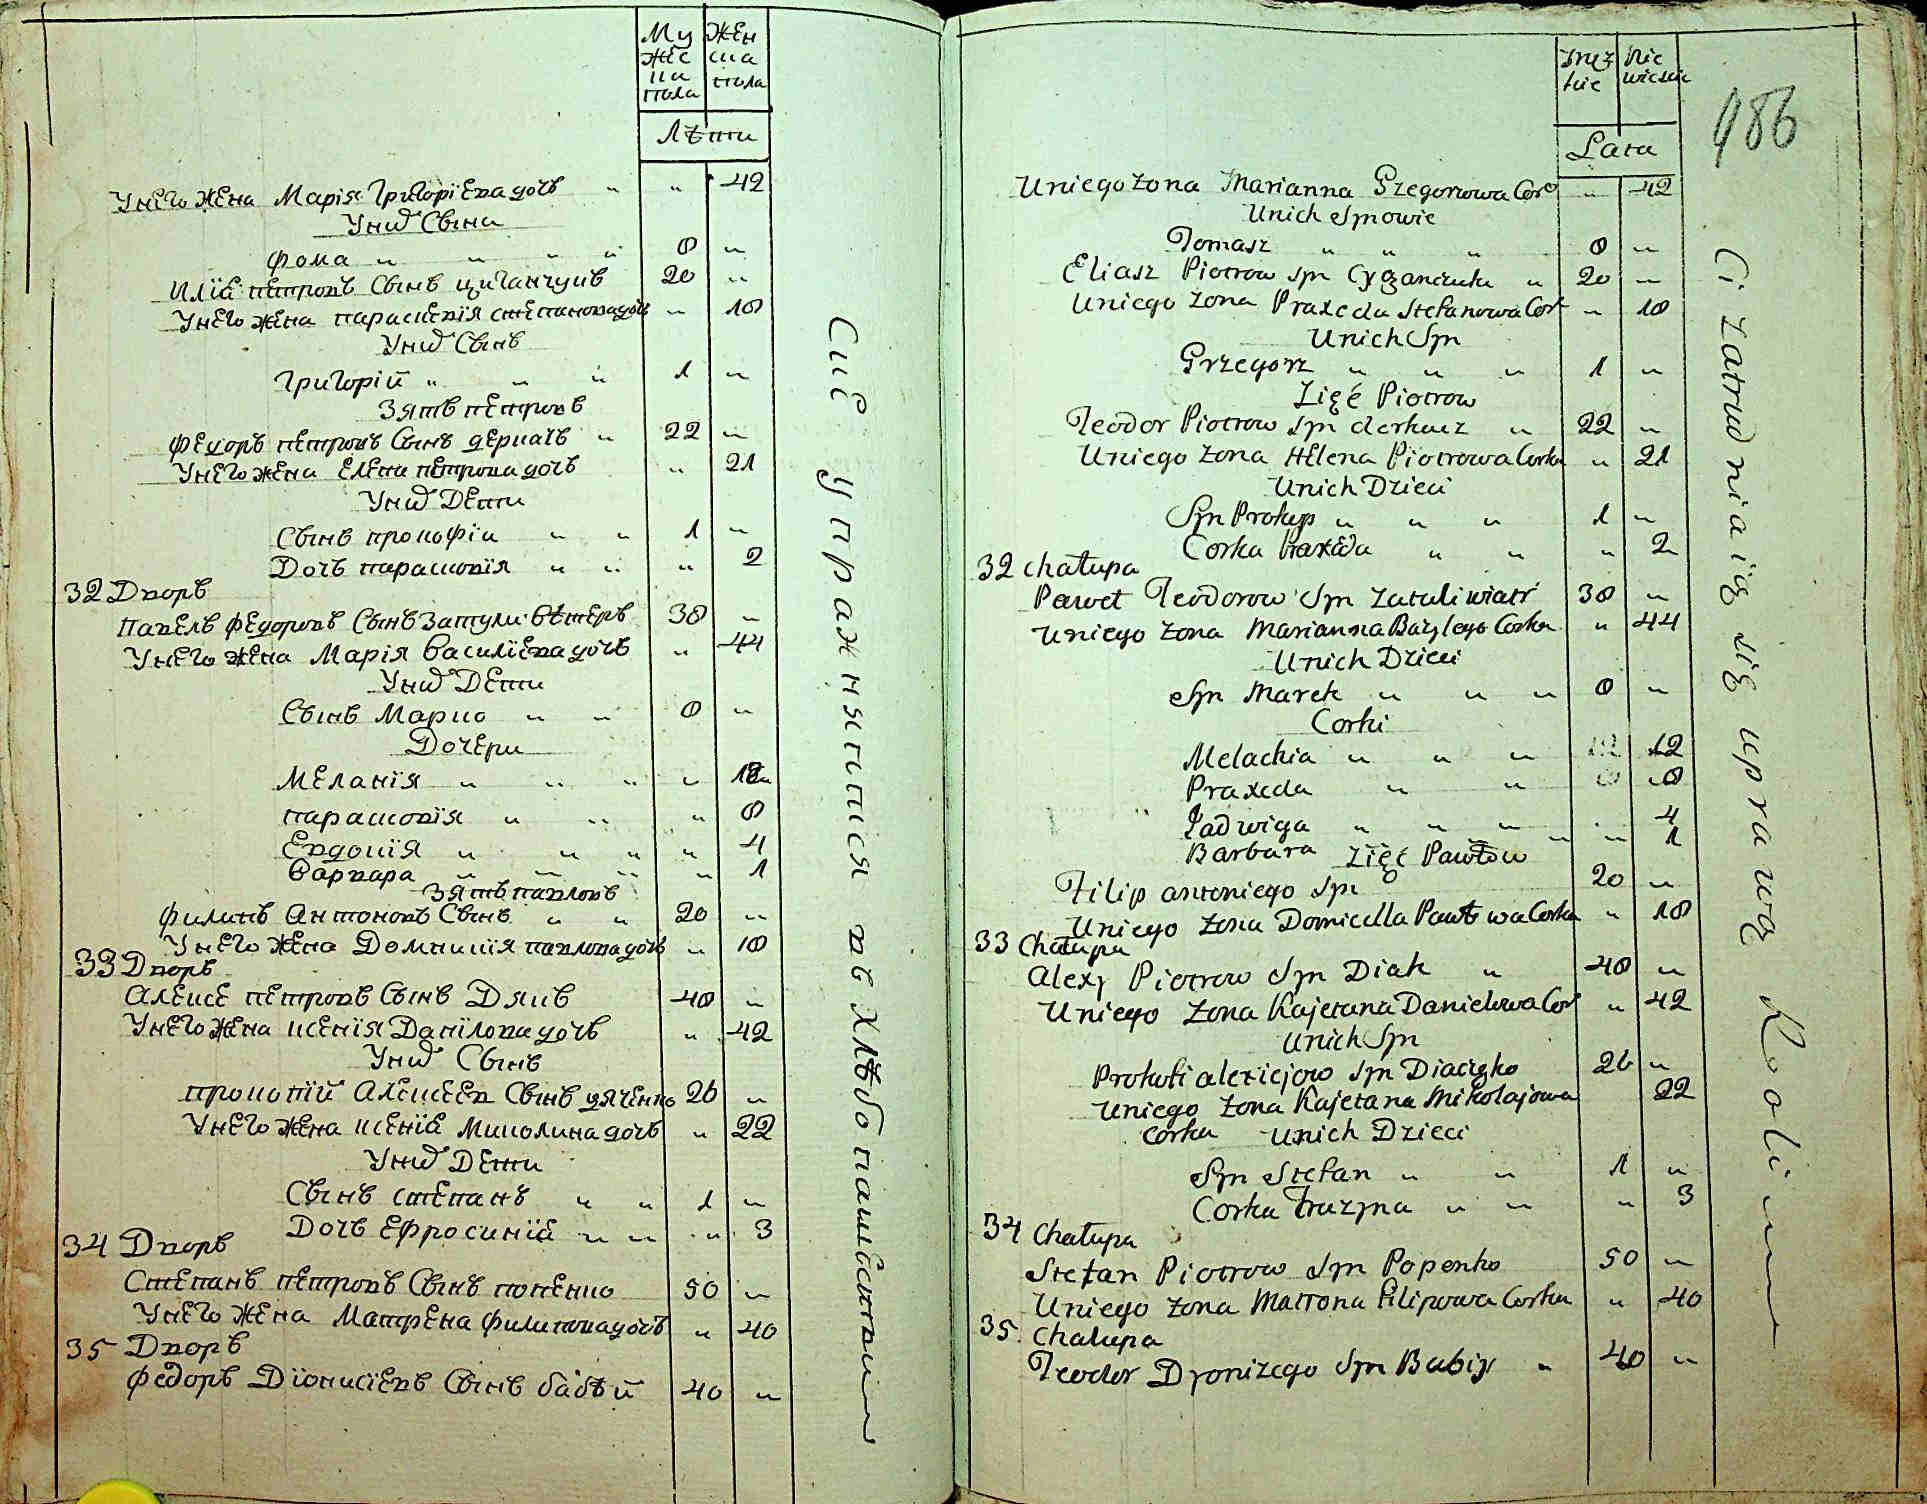 Му
жес
ка
пола
Жен
ска
пола
Лѣти
У него жена Марія Григоріева дочь " " 42
У них Сыни
Фома " " " " 8 "
Иліа петровъ Сынъ циганчукъ 20 "
У него жена параскевія степанова дочь " 18
У них Сынъ
Григорій " " " 1 "
Зять петровъ
Федоръ петровъ Сынъ деркачъ " 22 "
У него жена Елена петрова дочь " 21
У них Дети
Сынъ прокофіи " " 1 "
Дочъ парасковія " " " 2
32 Дворъ
павелъ федоровъ Сынъ Затуливѣтеръ 38 "
У него жена Марія василіева дочъ " 44
У них Дети
Сынъ Марко " " 8 "
Дочери
Меланія " " " " 12
парасковія " " " 8
Евдокія " " " " 4
варвара " " " " 1
Зять павловъ
филипъ Антоновъ Сынъ " " 20 "
У него жена Домникія павлова дочъ " 18
33 Дворъ
Алексе петровъ Сынъ Дякъ 48 "
У него жена ксенія Данілова дочъ " 42
У них Сынъ
прокопій Алексеев Сынъ дяченко 26 "
У него жена ксеніа Миколина дочъ " 22
У них Дети
Сынъ степанъ " " 1 "
Дочъ Ефросиніа " " " 3
34 Дворъ
Степанъ петровъ Сынъ попенко 50 "
У него жена Матрена филипова дочъ " 40
35 Дворъ
Федоръ Діонисіевъ Сынъ бабѣй 40 "
Сие упражняютися въ хлѣбопашествии
Męz
kie
Nie
wieskie
Lata
486
U niego żona Marianna Grzegorzowa Cor " 42
U nich Synowie
Tomasz " " " 8 "
Eliasz Piotrow syn Cyganczuk " 20 "
U niego żona Praxeda Stefanowa Cor " 18
U nich Syn
Grzegorz " " " 1 "
Zięć Piotrow
Teodor Piotrow syn derkacz " 22 "
U niego żona Helena Piotrowa Corka " 21
U nich Dzieci
Syn Prokop " " " 1 "
Corka Praxeda " " " 2
32 chałupa
Paweł Teodorow Syn Zatuliwiatr 38 "
U niego żona Marianna Bazylego Corka " 44
U nich Dzieci
Syn Marek " " " 8 "
Corki
Melachia " " " 12
Praxeda " " 8
Jadwiga " " " 4
Barbara " " " 1
Zięć Pawłow
Filip antoniego syn 20 "
U niego żona Domicella Pawłowa Corka " 18
33 Chałupa
Alexy Piotrow Syn Diak " 48 "
U niego żona Kajetana Danielowa Cor " 42
U nich Syn
Prokofi alexiejow syn Diaczko 26 "
U niego żona Kajetana Mikolajowa 22
corka U nich Dzieci
Syn Stefan " " 1 "
Corka Fruzyna " " " 3
34 Chałupa
Stefan Piotrow Syn Popenko 50 "
U niego żona Matrona Filipowa Corka " 40
35. Chałupa
Teodor Dyonizego Syn Babiy " 40 "
Ci zatrudniaią się uprawą Roolinne